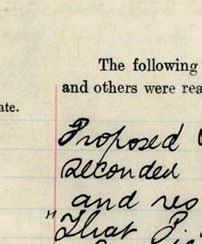 The following
and others were rea
ate.
Proposed
seconded
and res
"That P.